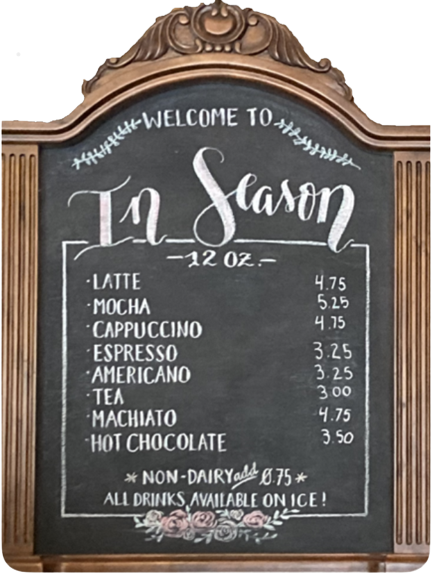 WELCOME TO
In Season
-12 OZ.-
·LATTE 4.75
·MOCHA 5.25
·CAPPUCCINO 4.75
·ESPRESSO 3.25
·AMERICANO 3.25
·TEA 3.00
·MACHIATO 4.75
·HOT CHOCOLATE 3.50
*NON-DAIRY add 0.75*
ALL DRINKS AVAILABLE ON ICE!